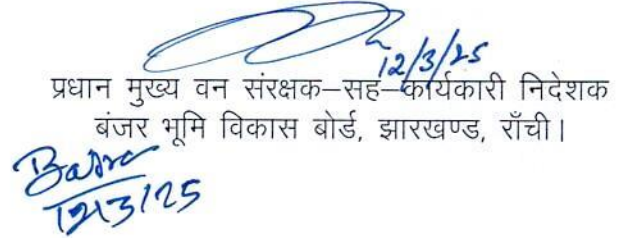 12/3/25
प्रधान मुख्य वन संरक्षक–सह–कार्यकारी निदेशक
बंजर भूमि विकास बोर्ड, झारखण्ड, राँची।
12/3/25